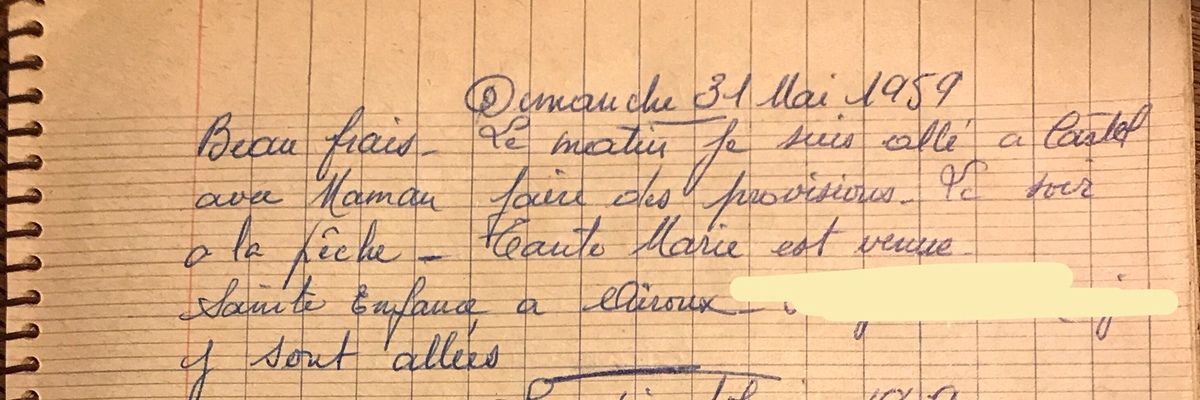 Dimanche 31 Mai 1959
Beau frais - Le matin je suis allé a Castel
avec Maman faire des provisions - Le soir
a la pêche - Tante Marie est venue -
Sainte Enfance a
y sont allées